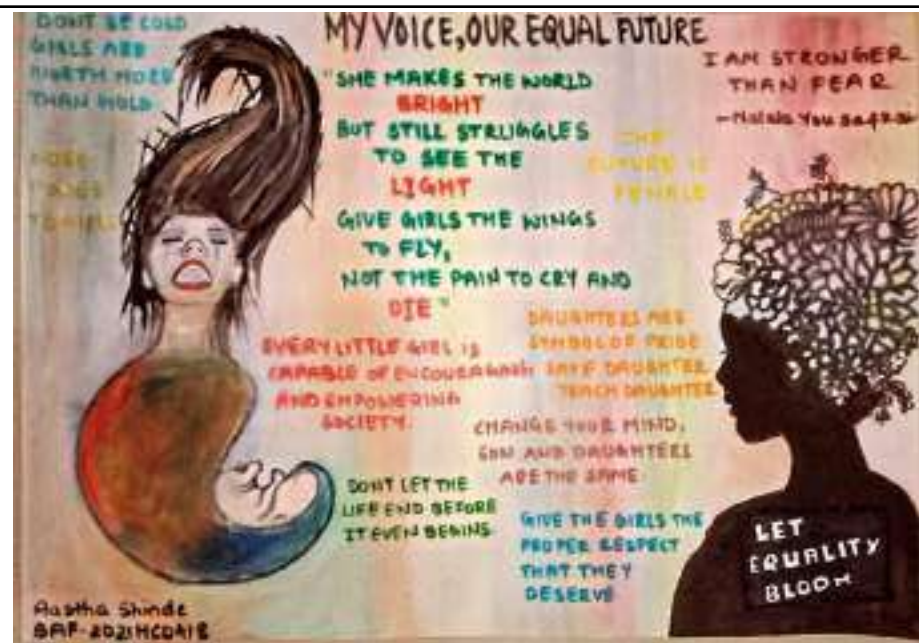 MY VOICE, OUR EQUAL FUTURE
DONT BE COLD
GIRLS ARE
WORTH MORE
THAN GOLD
"SHE MAKES THE WORLD
BRIGHT
BUT STILL STRUGGLES
TO SEE THE
LIGHT
GIVE GIRLS THE WINGS
TO FLY,
NOT THE PAIN TO CRY AND
DIE"
I AM STRONGER
THAN FEAR
THE
FUTURE IS
FEMALE
EVERY LITTLE GIRL IS
CAPABLE OF
AND EMPOWERING
SOCIETY.
DAUGHTERS ARE
SYMBOL OF PRIDE
SAVE DAUGHTER
TEACH DAUGHTER
CHANGE YOUR MIND,
SON AND DAUGHTERS
ARE THE SAME
DONT LET THE
LIFE END BEFORE
IT EVEN BEGINS
GIVE THE GIRLS THE
PROPER RESPECT
THAT THEY
DESERVE
LET
EQUALITY
BLOOM
Aastha Shinde